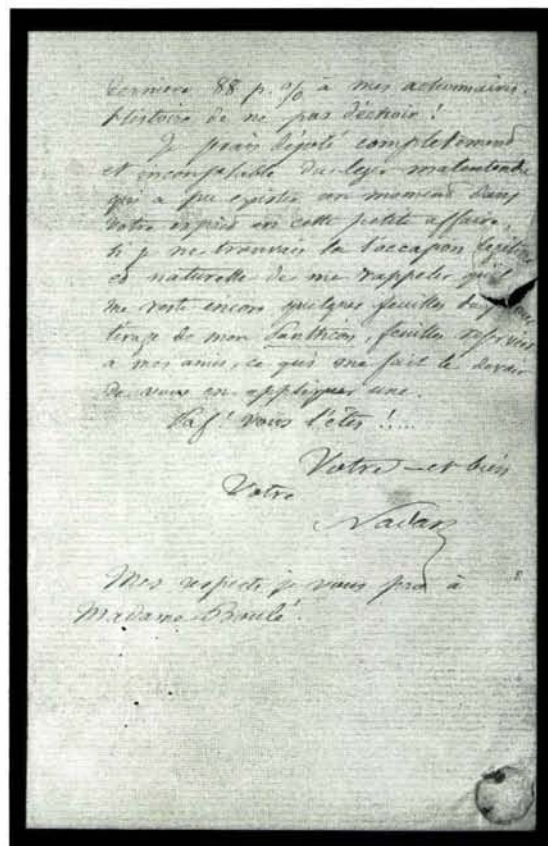 dernière 88 p. % à mes actionnaires.
Histoire de ne pas déchoir !
Je serais dégoté complètement
et inconsolable du léger malentendu
qui a pu exister un moment dans
votre esprit en cette petite affaire,
si je ne trouvais là l'occasion légitime
et naturelle de me rappeler qu'il
me reste encore quelques feuilles du
tirage de mon Panthéon, feuilles réservées
à mes amis, ce qui me fait le devoir
de vous en appliquer une.
Paf ! vous l'êtes !....
Votre — et bien
Votre
Nadar
Mes respects je vous prie à
Madame Boulé.